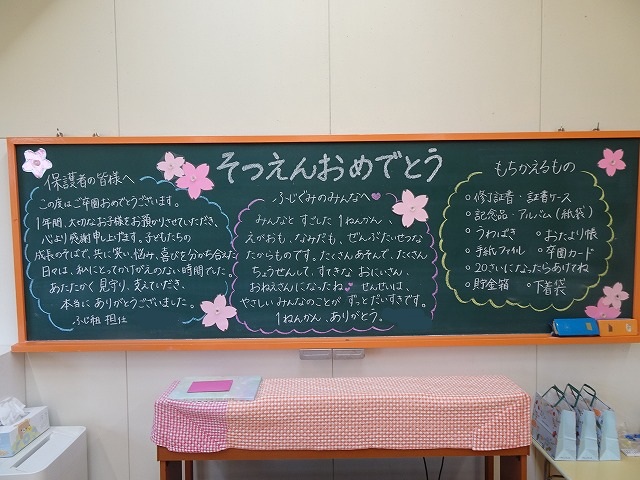 そつえんおめでとう
保護者の皆様へ
この度はご卒園おめでとうございます。
1年間、大切なお子様をお預かりさせていただき、
心より感謝申し上げます。子どもたちの
成長のそばで、共に笑い、悩み、喜びを分かち合えた
日々は、私にとってかけがえのない時間でした。
あたたかく見守り、支えていただき、
本当にありがとうございました。
ふじ組 担任
ふじぐみのみんなへ
みんなと すごした 1ねんかん、
えがおも、なみだも、ぜんぶたいせつな
たからものです。たくさんあそんで、たくさん
ちょうせんして、すてきな おにいさん、
おねえさんになったね。せんせいは、
やさしいみんなのことが ずっとだいすきです。
1ねんかん、ありがとう。
もちかえるもの
○修了証書・証書ケース
○記念品・アルバム(紙袋)
○うわばき ○おたより帳
○手紙ファイル ○卒園カード
○20さいになったらあけてね
○貯金箱 ○下着袋